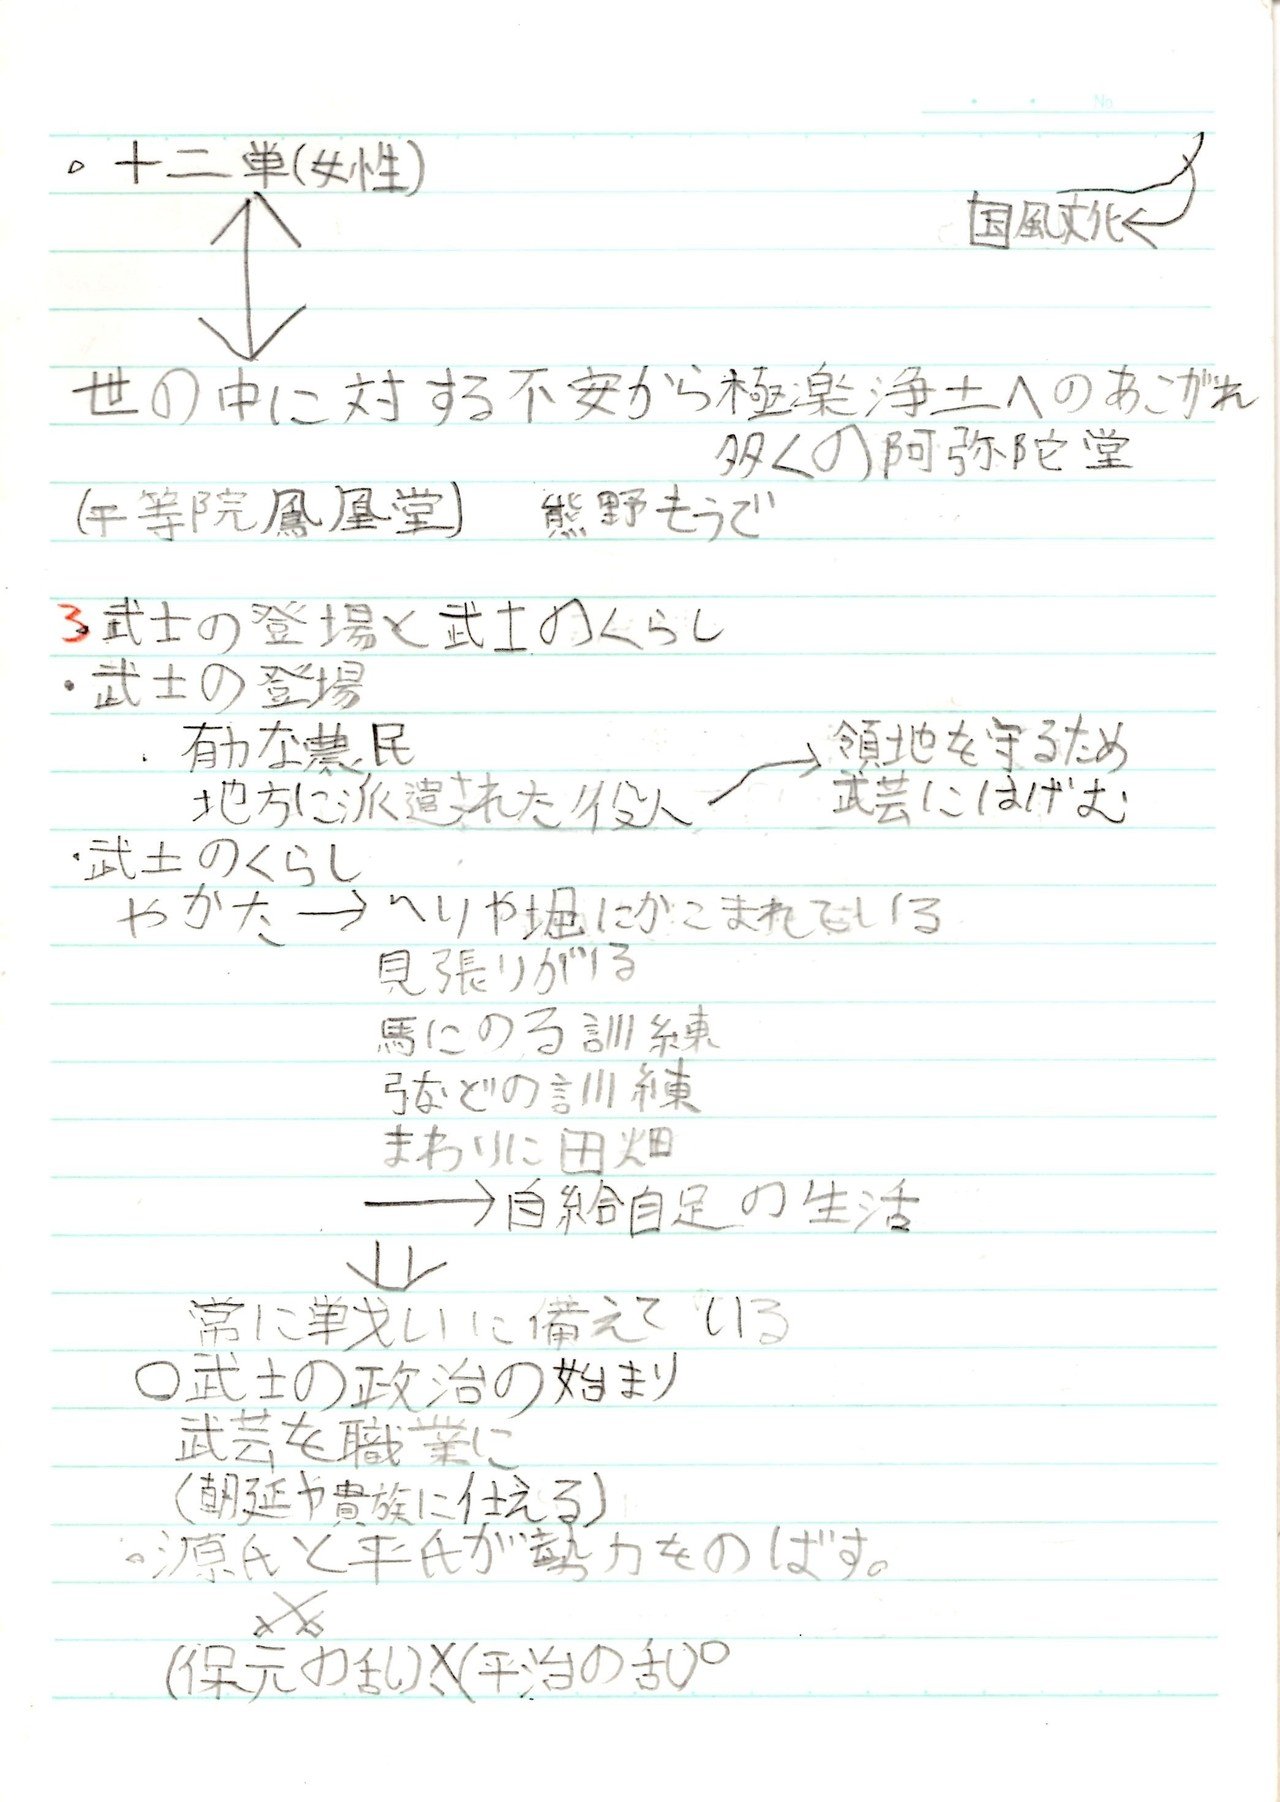 No
。十二単(女性)
国風文化
世の中に対する不安から極楽浄土へのあこがれ
多くの阿弥陀堂
(平等院鳳凰堂) 熊野もうで
3.武士の登場と武士のくらし
・武士の登場
・有力な農民
地方に派遣された役人
領地を守るため
武芸にはげむ
・武士のくらし
やかた→へいや堀にかこまれている
見張りがいる
馬にのる訓練
弓などの訓練
まわりに田畑
→自給自足の生活
常に戦いに備えている
○武士の政治の始まり
武芸を職業に
(朝廷や貴族に仕える)
。源氏と平氏が勢力をのばす。
(保元の乱)×(平治の乱)○